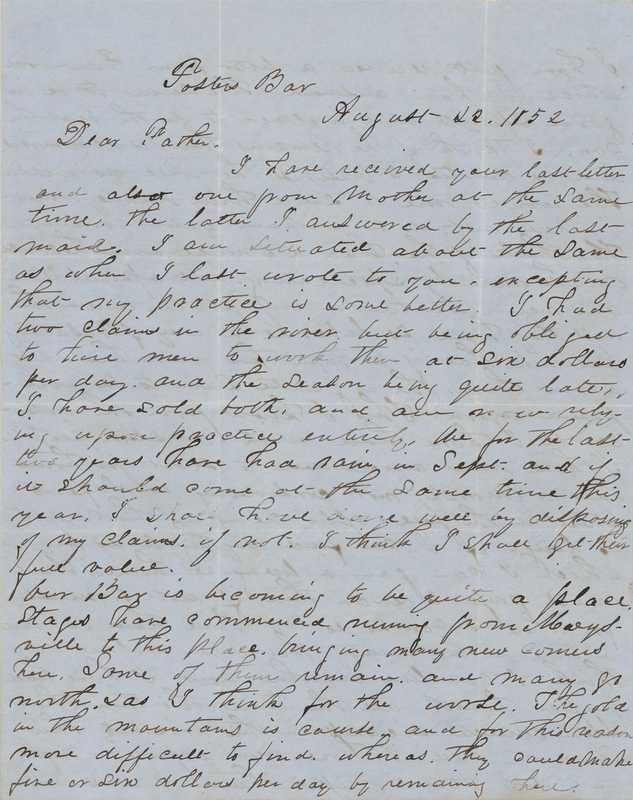 Fosters Bar
August 22. 1852
Dear Father.
I have received your last letter
and also one from Mother at the same
time. the latter I answered by the last
mail. I am situated about the same
as when I last wrote to you. excepting
that my practice is some better. I had
two claims in the river but being obliged
to hire men to work them at six dollars
per day. and the season being quite late,
I have sold both, and am now rely-
ing upon practice entirely, We for the last
two years have had rain in Sept. and if
it should come at the same time this
year. I shall have done well by disposing
of my claims. if not. I think I shall get their
full value.
Our Bar is becoming to be quite a place,
Stages have commenced running from Marys-
ville to this place. bringing many new comers
here. Some of them remain. and many go
north. as I think for the worse. The gold
in the mountains is course and for this reason
more difficult to find. whereas. they could make
five or six dollars per day by remaining here.